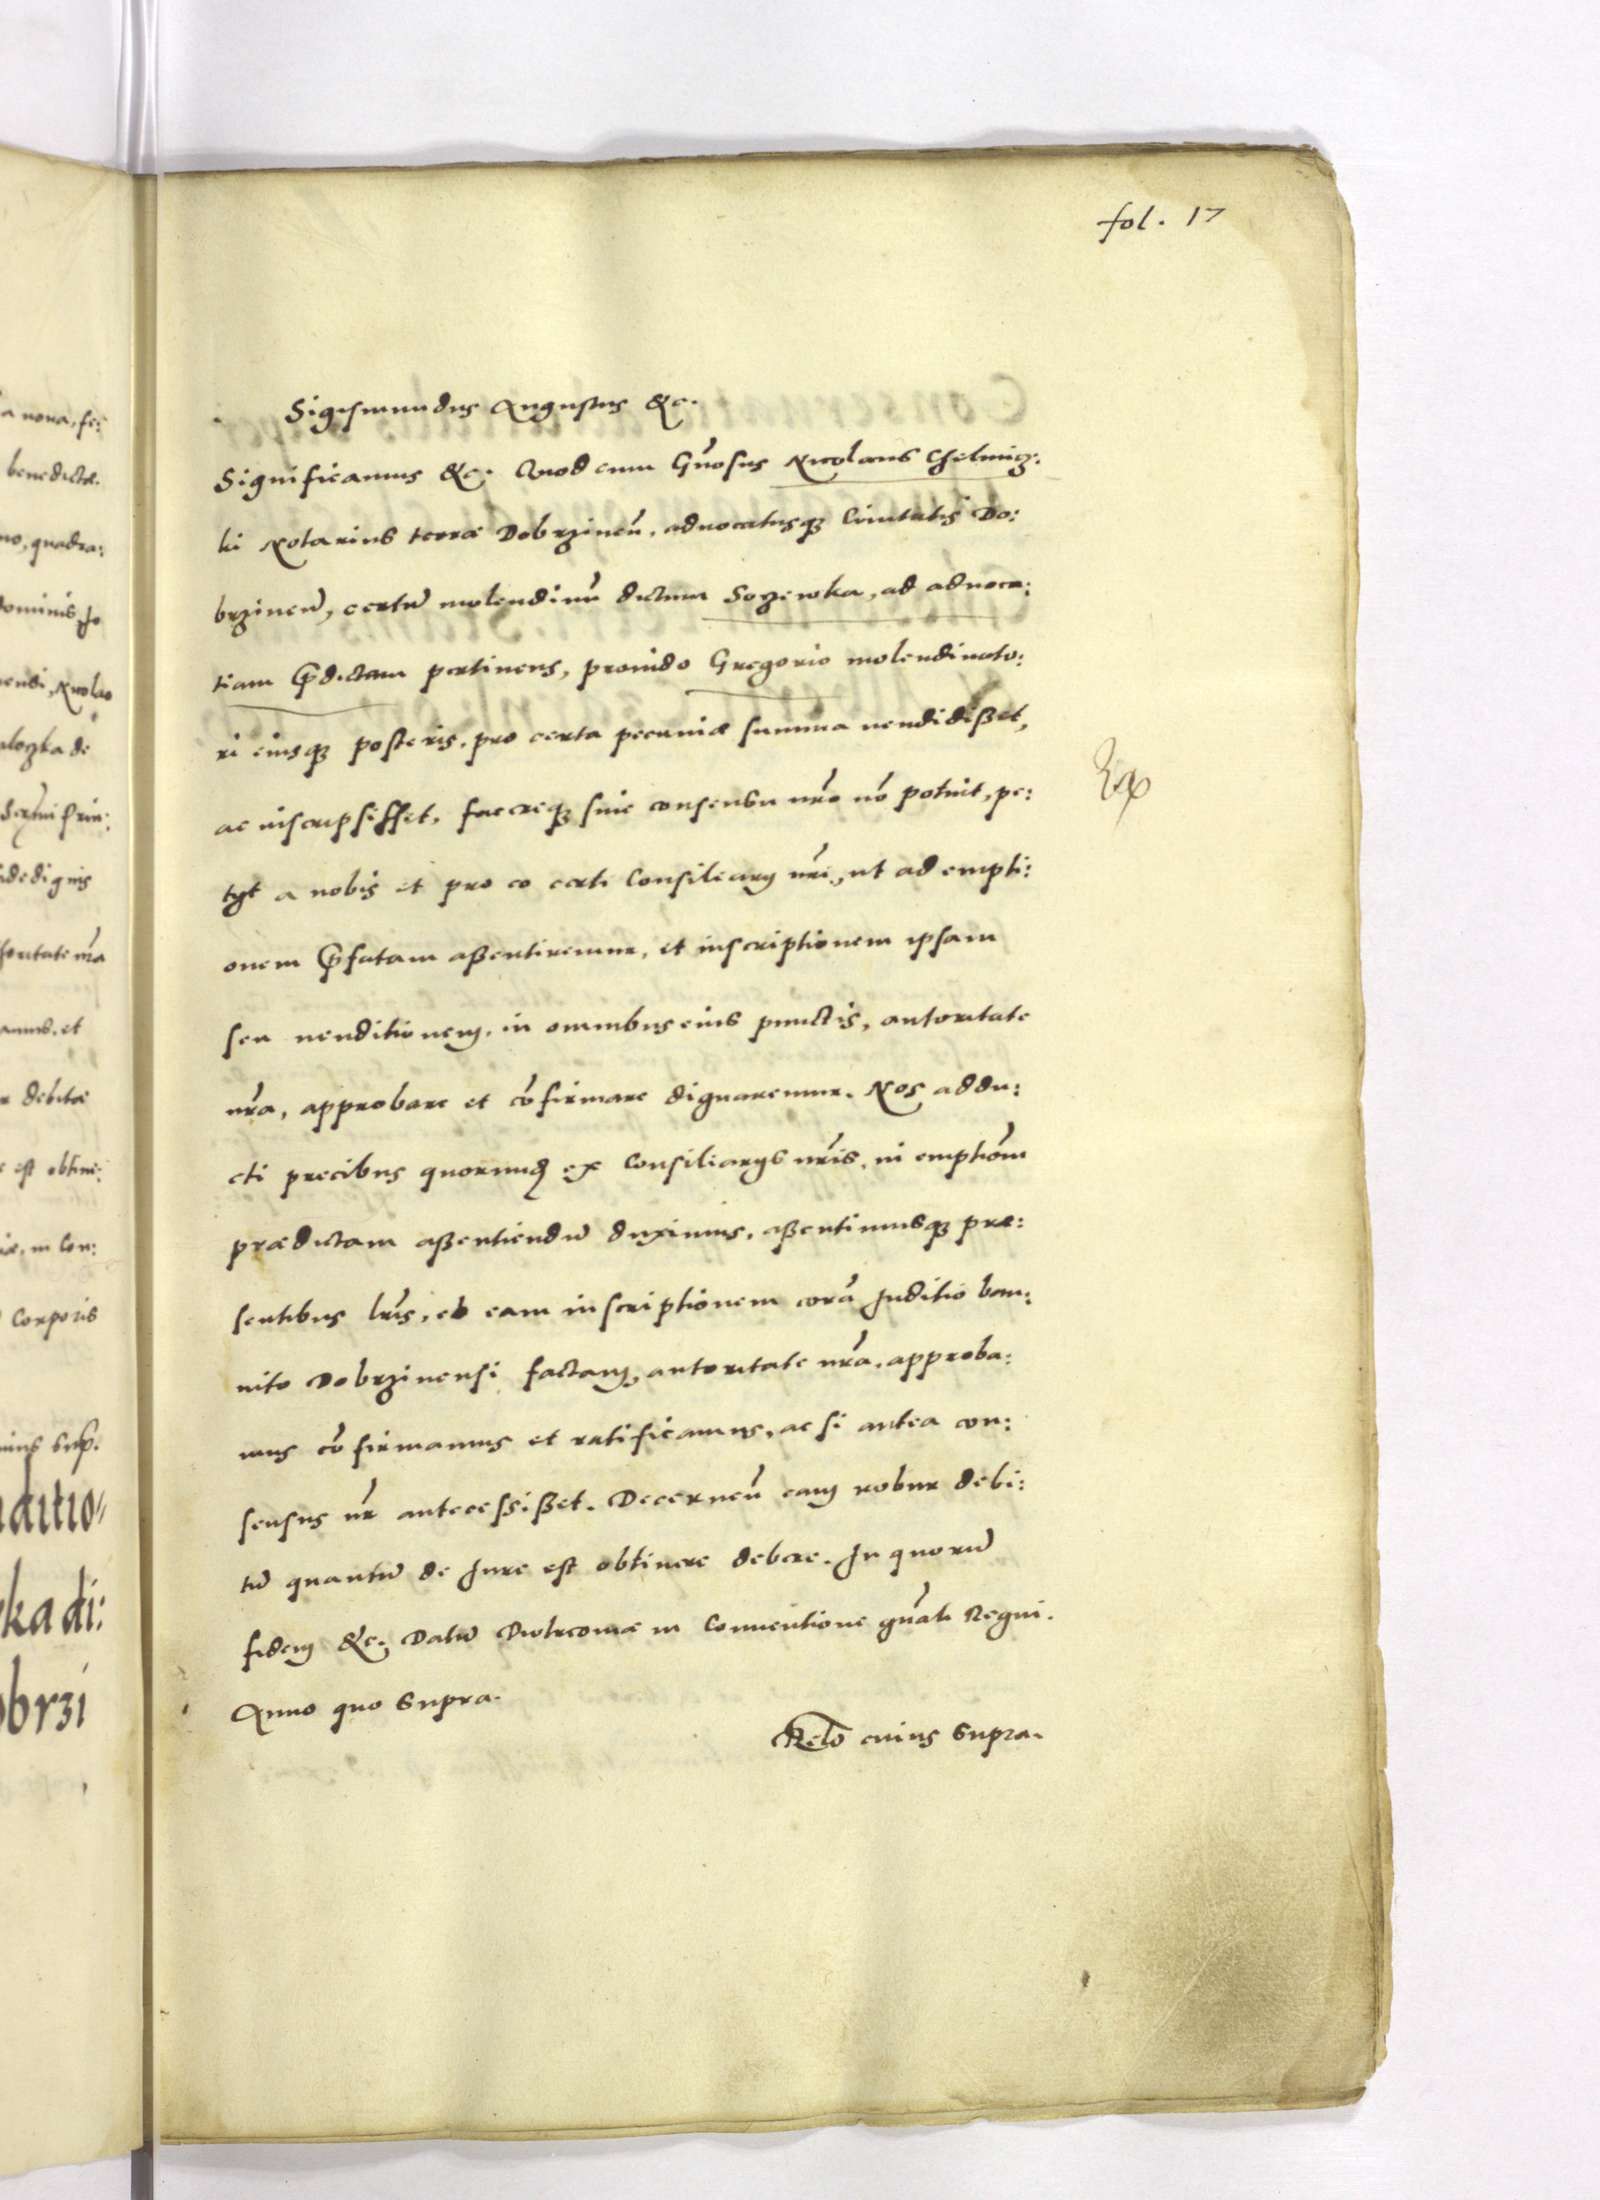 fol. 17
Sigismundus Augustus &c.
Significamus &c. Quod cum Gn̄osus Nicolaus Chelmicz:
ki Notarius terræ Dobrzineñ, aduocatusqȝ Ciuitatis Do:
brzineñ, certũ molendinũ dictum Sozewka, ad aduoca:
tiam p̄dictam pertinens, prouido Gregorio molendinato:
ri eiusqȝ posteris, pro certa pecuniæ summa uendidißet,
ac inscripsisset, facereqȝ sine consensu nr̃o nõ potuit, pe:
tijt a nobis et pro eo certi Consiliarij nr̃i, ut ad empti:
onem p̄fatam aßentiremur, et inscriptionem ipsam
seu uenditionem, in omnibus eius punctis, autoritate
nr̃a, approbare et cõfirmare dignaremur. Nos addu:
cti precibus quorundã ex Consiliarijs nr̃is, in emptiõem
prædictam aßentiendũ duximus, aßentimusqȝ præ:
sentibus lr̃is, et eam inscriptionem corã Juditio ban:
nito Dobrzinensi factam, autoritate nr̃a, approba:
mus cõfirmamus et ratificamus, ac si antea con:
sensus nr̃ antecessißet. Decerneñ eam robur debi:
tũ quantũ de Jure est obtinere debere. In quorũ
fidem &c. Datũ Piotrcouiæ in Conuentione gñali Regni.
Anno quo supra.
Relõ cuius supra.
a noua, fe:
benedictæ.
no, quadra:
dominis Jo
Nicolao
de
Serm̃i Prin:
fidedignis
nr̃a
et
debitæ
est obtine:
in Con:
Corporis
ditio
ka di:
brzi